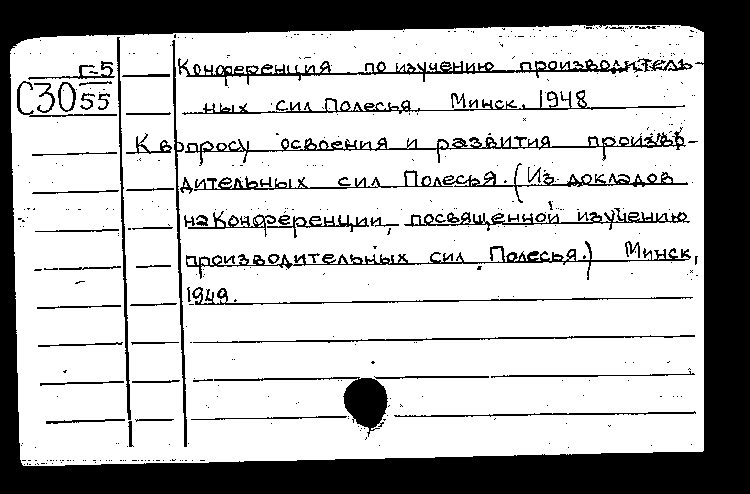 Г-5
С30
55
Конференция по изучению производитель-
ных сил Полесья. Минск. 1948
К вопросу освоения и развития произво-
дительных сил Полесья. (Из докладов
на Конференции, посвященной изучению
производительных сил Полесья.) Минск,
1949.